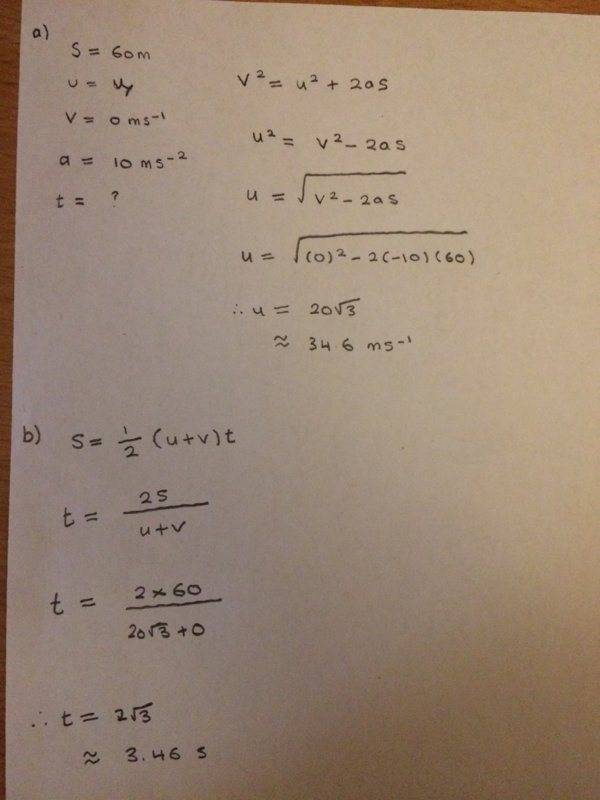 a)
S = 60m
u = uy
v = 0 ms⁻¹
a = 10 ms⁻²
t = ?
v² = u² + 2as
u² = v² - 2as
u = √(v² - 2as)
u = √((0)² - 2(-10)(60))
∴ u = 20√3
≈ 34.6 ms⁻¹
b)
S = 1/2 (u+v)t
t = 2S / u+v
t = 2×60 / 20√3 + 0
∴ t = 2√3
≈ 3.46 s